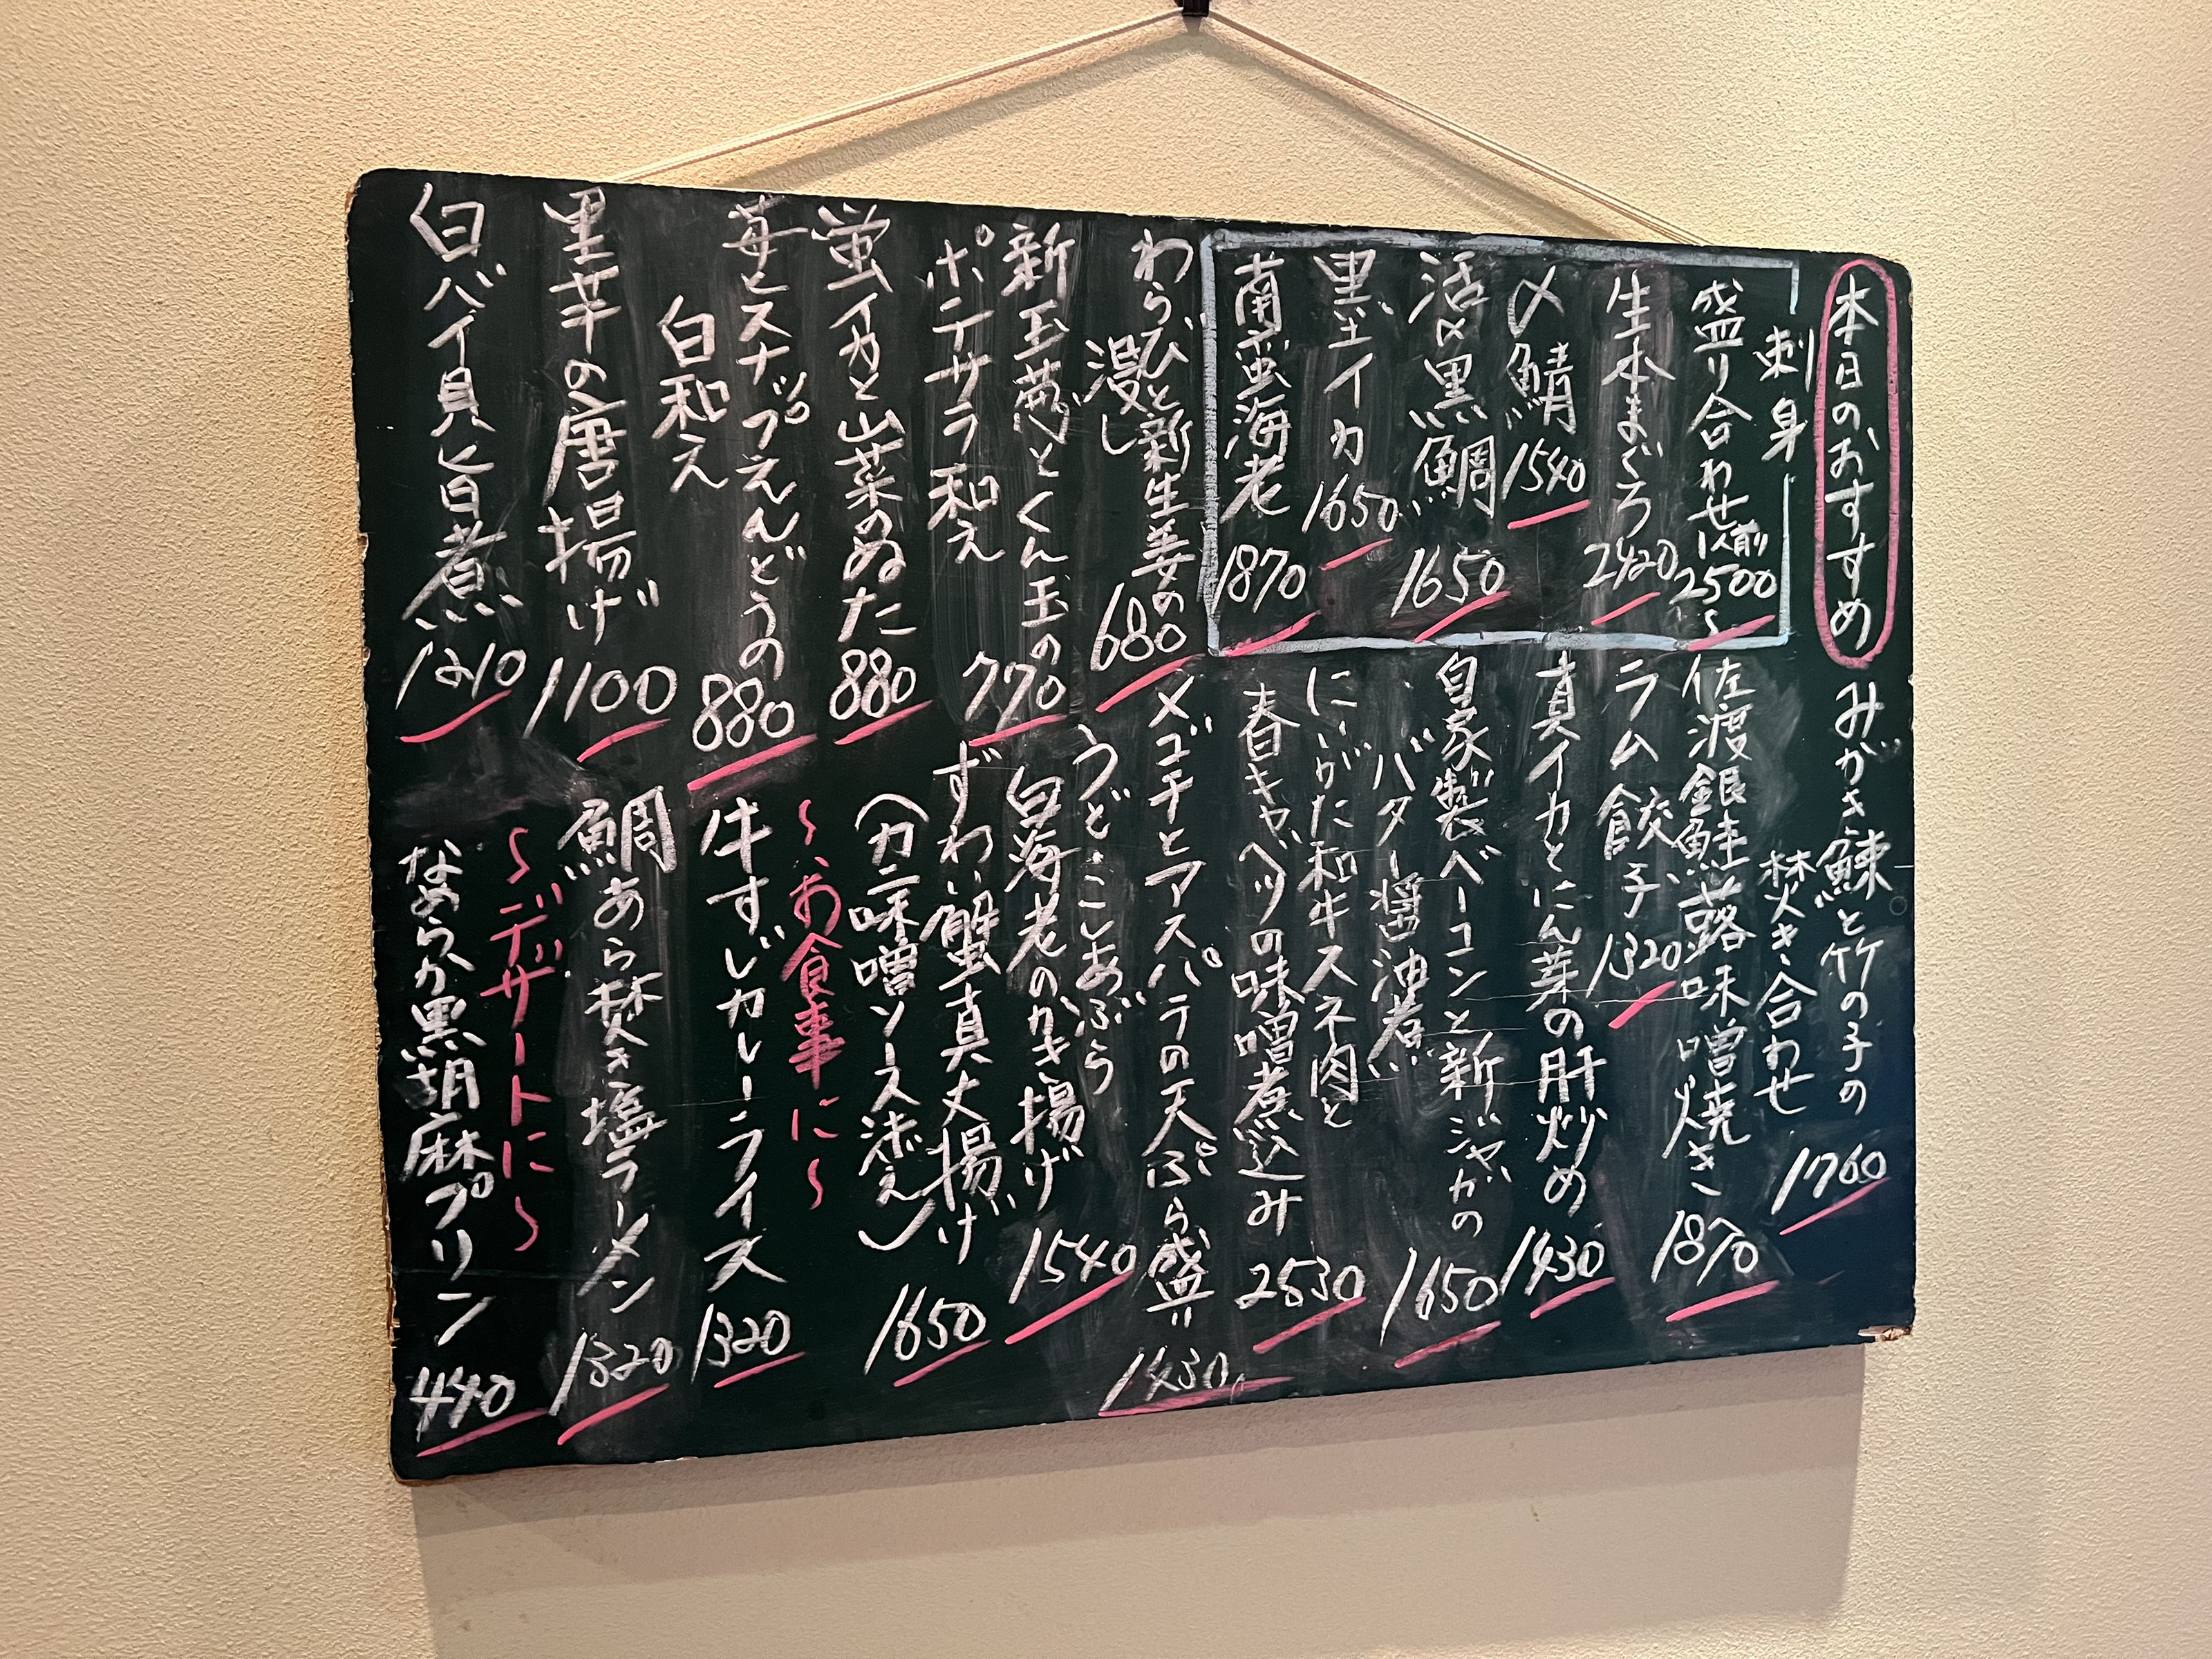 本日のおすすめ
刺身
盛り合わせ 1人前 2500〜
生本まぐろ 2420
〆鯖 1540
活〆黒鯛 1650
墨イカ 1650
南蛮海老 1870
わらびと新生姜の
浸し 680
新玉葱とくん玉の
ポテサラ和え 770
蛍イカと山菜のぬた 880
苺とスナップえんどうの
白和え 880
里芋の唐揚げ 1100
白バイ貝旨煮 1210
みがき鰊と竹の子の
焚き合わせ 1760
佐渡銀鮭蕗味噌焼き 1870
ラム餃子 1320
真イカとにん芽の肝炒め 1430
自家製ベーコンと新ジャガの
バター醤油煮 1650
にいがた和牛スネ肉と
春キャベツの味噌煮込み 2530
メゴチとアスパラの天ぷら盛 1430
うどとこしあぶら
白海老のかき揚げ 1540
ずわい蟹真丈揚げ
(カニ味噌ソース添え) 1650
〜お食事に〜
牛すじカレーライス 1320
鯛あら焚き塩ラーメン 1320
〜デザートに〜
なめらか黒胡麻プリン 440